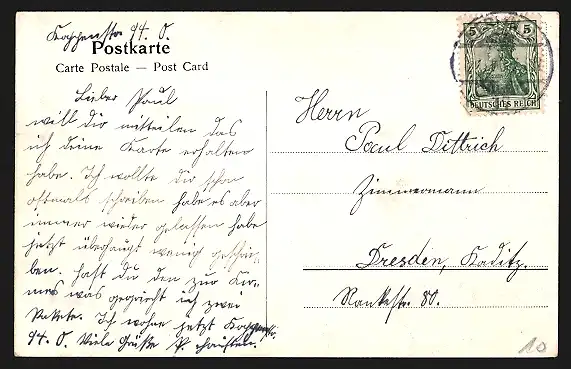 Kappenstr. 94. O.
Postkarte
Carte Postale — Post Card
Lieber Paul
will dir mitteilen das
ich deine Karte erhalten
habe. Ich wollte dir schon
oftmals schreiben habe es aber
immer wieder gelassen habe
jetzt überhaupt wenig geschrie-
ben. Hast du den zur Kir-
mes was gekriegt ich zwei
Pakete. Ich wohne jetzt Kappenstr.
94. O. Viele Grüße P.
5 5
DEUTSCHES REICH
Herrn
Paul Dittrich
Zimmermann
Dresden, Kaditz.
Rankestr. 80.
10